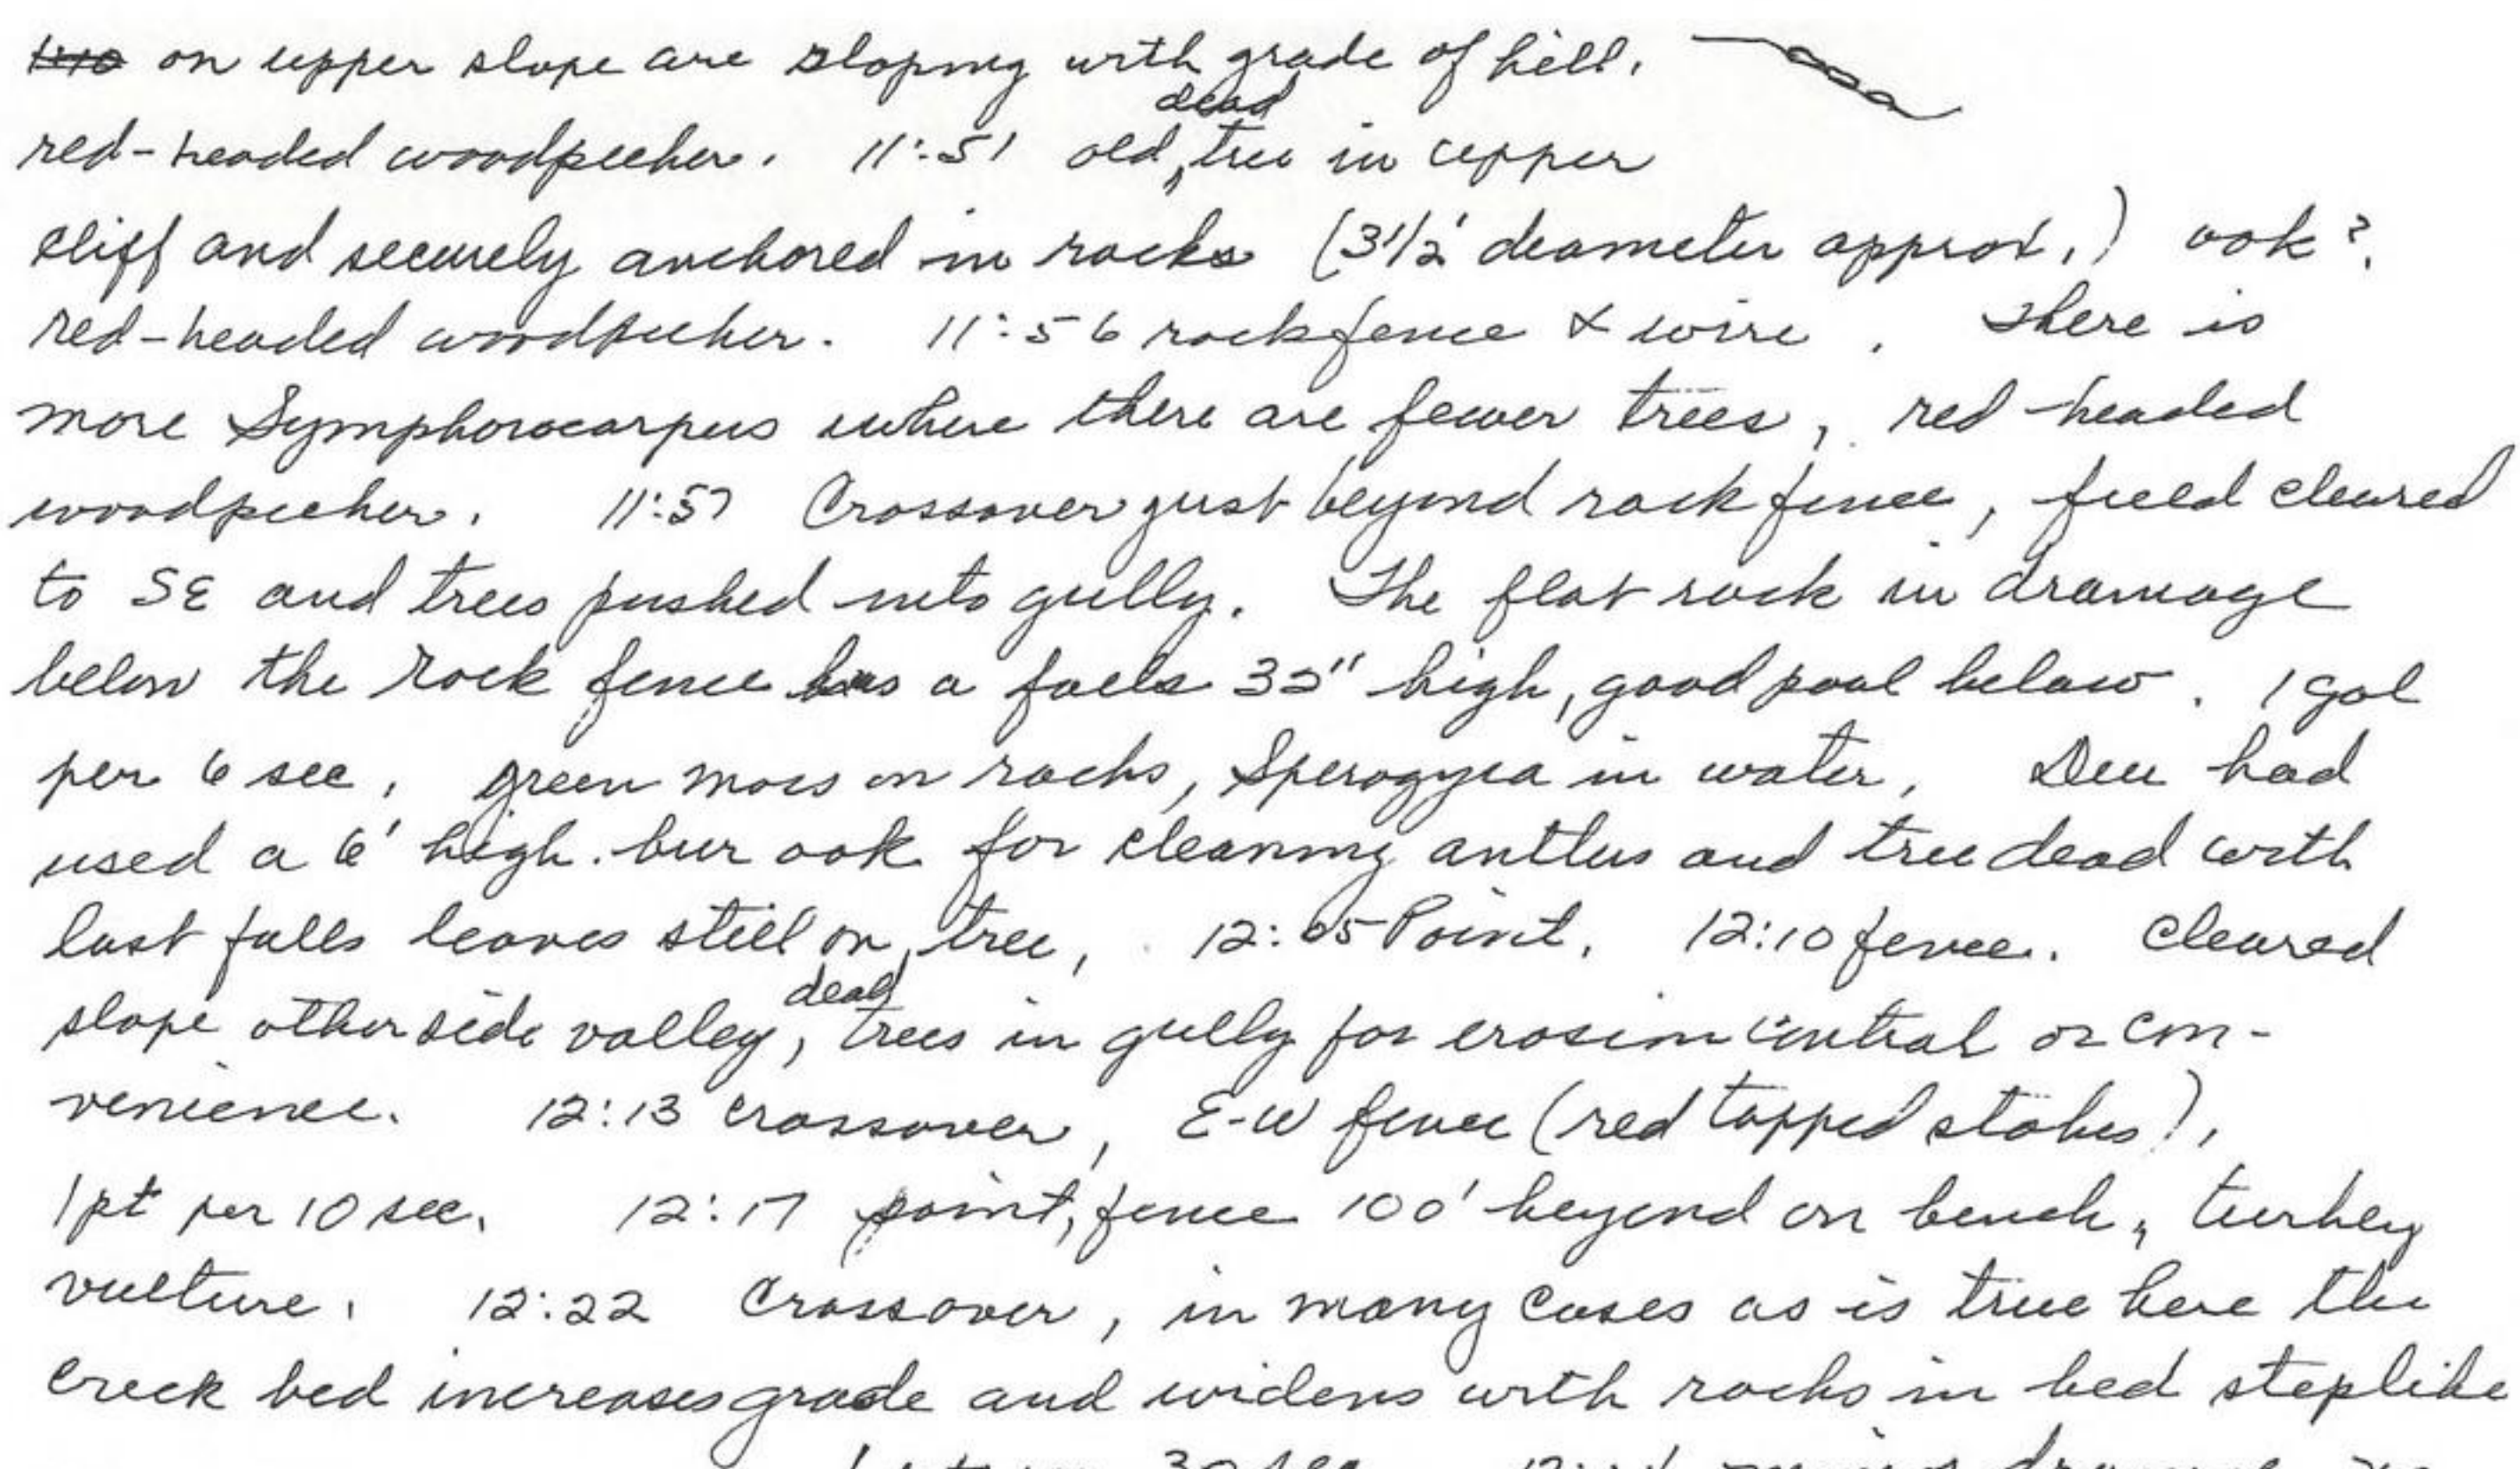 on upper slope are sloping with grade of hill.
red-headed woodpecker. 11:51 old dead tree in upper
cliff and securely anchored in rocks (3 1/2' diameter approx.) oak?.
red-headed woodpecker. 11:56 rock fence & wire. There is
more Symphorocarpus where there are fewer trees, red-headed
woodpecker. 11:57 Crossover just beyond rock fence, field cleared
to SE and trees pushed into gully. The flat rock in drainage
below the rock fence has a falls 32" high, good pool below. 1 gal
per 6 sec, green moss on rocks, Sperogyra in water, Deer had
used a 6' high bur oak for cleaning antlers and tree dead with
last falls leaves still on tree, 12:05 Point. 12:10 fence. Cleared
slope other side valley, dead trees in gully for erosion control or con-
venience. 12:13 crossover, E-W fence (red topped stakes),
1 pt per 10 sec. 12:17 point, fence 100' beyond on bench, turkey
vulture. 12:22 Crossover, in many cases as is true here the
creek bed increases grade and widens with rocks in bed steplike